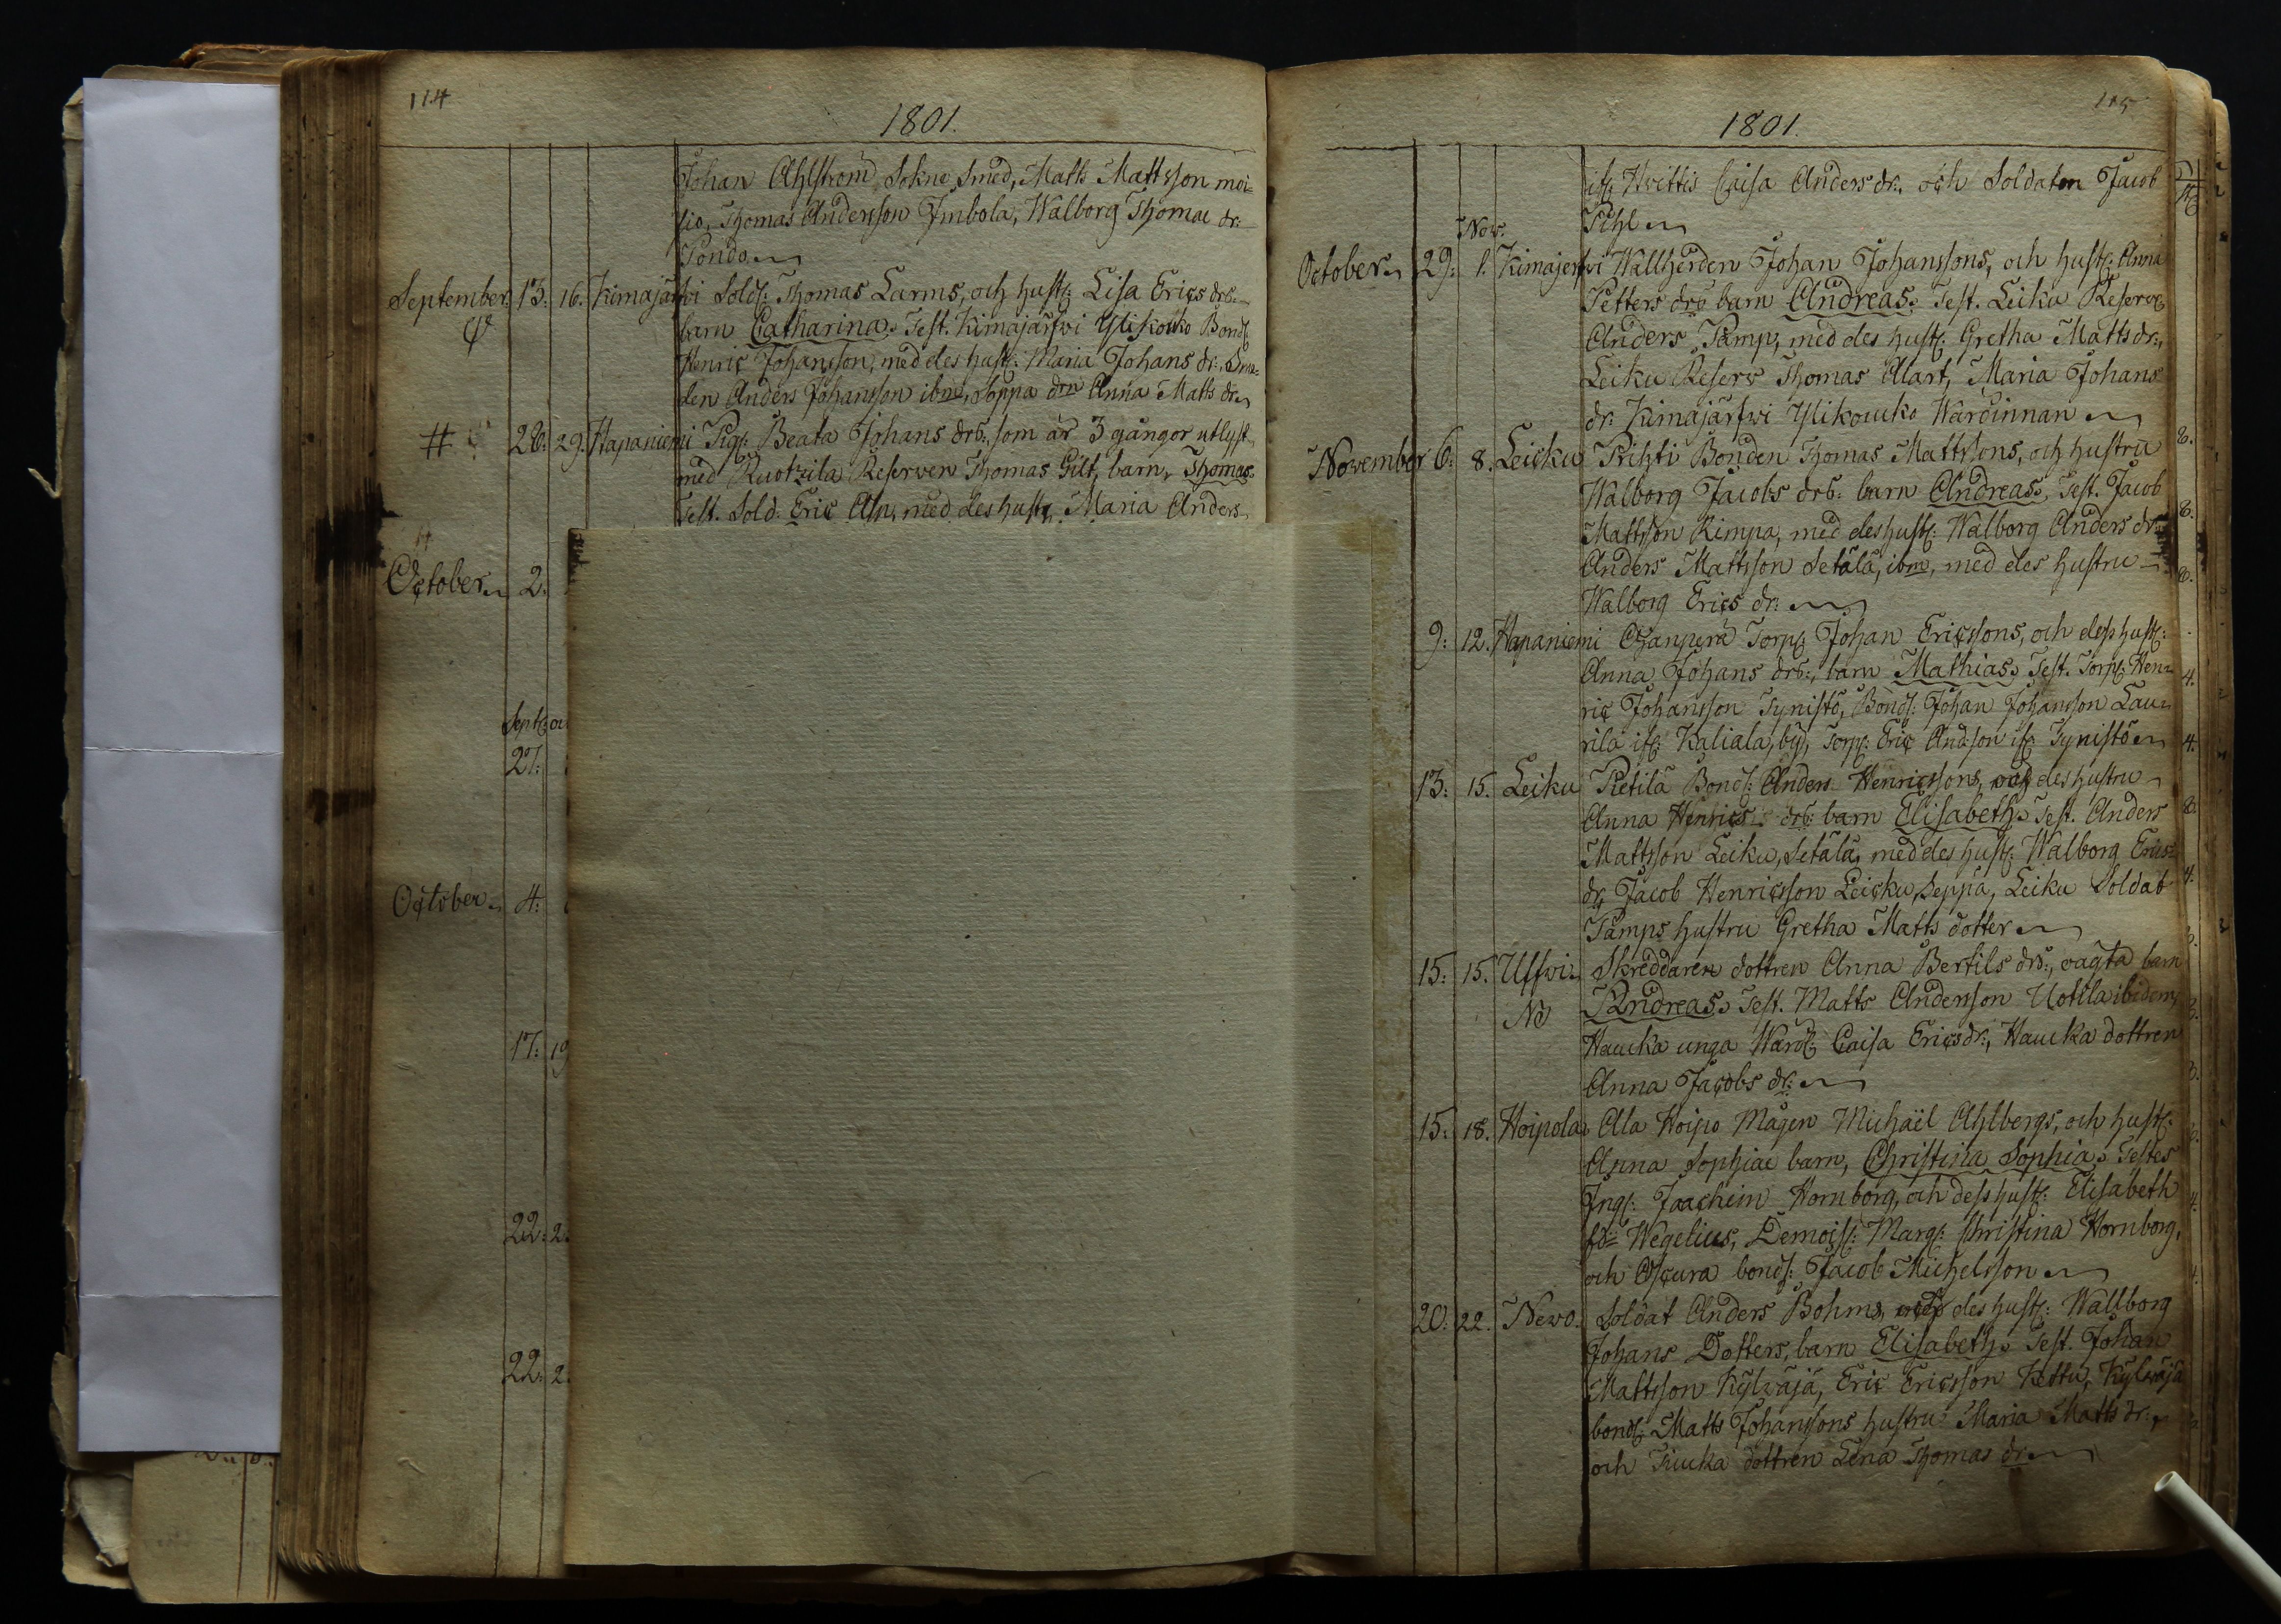 114
1801.
Johan Ahlström, Sokne Smed, Matts Mattsson moi=
sio, Thomas Andersson Imbola, Walborg Thomæ dr:
Pondo
September. 13: 16. Kimajärfwi Sold: Thomas Larms, och hust: Lisa Erics drs:
barn Catharina. Test. Kimajärfwi Ylikouko Bond:
Henric Johansson, med des hust: Maria Johans dr:,
den Anders Johansson ibm, Anna Matts dr:
# 28: 29. Hapaniemi Pig: Beata Johans drs:, som är 3 gångor utlyst
med Ruotzila Reserven Thomas Gilt, barn, Thomas.
Test. Sold: Eric Alm, med des hust: Maria Anders
October 2.
Sept:
27:
October 4:
17: 19
22: 2
22: 2
115
1801.
if: Hwittis Caisa Anders dr:, och Soldaten Jacob
Pihl
Nov:
October 29: 1. Kimajerfwi Wallherden Johan Johanssons, och hust: Anna
Petters drs barn Andreas. Test. Leiku Reserv:
Anders Pamp, med des hust: Gretha Matts dr:,
Leiku Reserv Thomas Alart, Maria Johans
dr: Kimajärfwi Ylikoucko Wärdinnan
November 6: 8. Leicku Prihti Bonden Thomas Mattssons, och hustru
Walborg Jacobs drs: barn Andreas, Test. Jacob
Mattsson Rimpa, med des hust: Walborg Anders dr:
Anders Mattsson Setälä, ibm, med des hustru
Walborg Erics dr:
9: 12. Hapaniemi Ojanperä Torp: Johan Ericssons, och dess hust:
Anna Johans drs:, barn Mathias. Test. Torp: Hen=
ric Johansson Tynistö, Bond: Johan Johansson Lau=
rila if: Kaliala by, Torp: Eric Andsson if: Tynistö
13: 15. Leiku Pietilä Bond: Anders Henricssons, och des hustru
Anna Henrics drs: barn Elisabeth. Test. Anders
Mattsson Leiku, Setälä, med des hust: Walborg Erics
dr: Jacob Henricsson Leicku, Seppä, Leiku Soldat
Pamps hustru Gretha Matts dotter
15: 15. Uffwi Skreddaren dottren Anna Bertils drs:, oägta barn
NB Andreas. Test. Matts Andersson Uotila ibidem,
Haucka unga Wärd: Caisa Erics dr:, Haucka dottren
Anna Jacobs dr:
15: 18. Hoipola Ala Hoipo Mågen Michaël Ahlbergs, och hust:
Anna Sophiæ barn, Christina Sophia. Testes
Ing: Joachim Hornborg, och dess hust: Elisabeth
fd= Wegelius, Demois: Marg: Christina Hornborg,
och bond: Jacob Michelsson
20: 22. Nevo. Soldat Anders Bohms, och des hust: Wallborg
Johans Dotters, barn Elisabeth. Test. Johan
Mattsson Kylväjä, Eric Ericsson Kettu, Kylväjä
bond: Matts Johanssons hustru Maria Matts dr:,
och Kiucka dottren Lena Thomas dr: